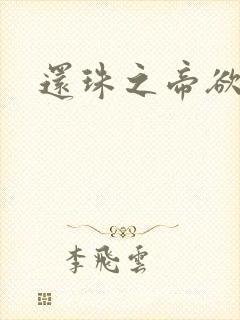 還珠之帝欲
李飛雲